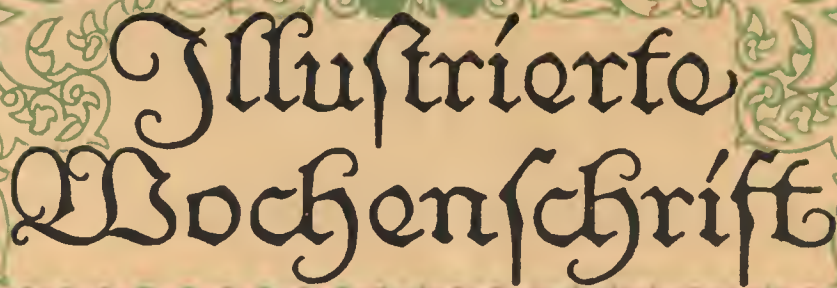 Illuſtrierte
Wochenſchrift